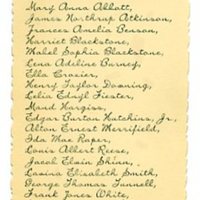 Mary Anna Abbott,
James Northrup Atkinson,
Frances Amelia Benson,
Harriet Blackstone,
Mabel Sophia Blackstone,
Lena Adeline Barney,
Ella Crosier,
Henry Taylor Downing,
Lelia Edryl Fiester,
Maud Hargiss,
Edgar Burton Hutchins, Jr.,
Alton Ernest Merrifield,
Ida Mae Raper,
Louis Albert Reese,
Jacob Elwin Shinn,
Lavina Elizabeth Smith,
George Thomas Tunnell,
Frank Jones White,